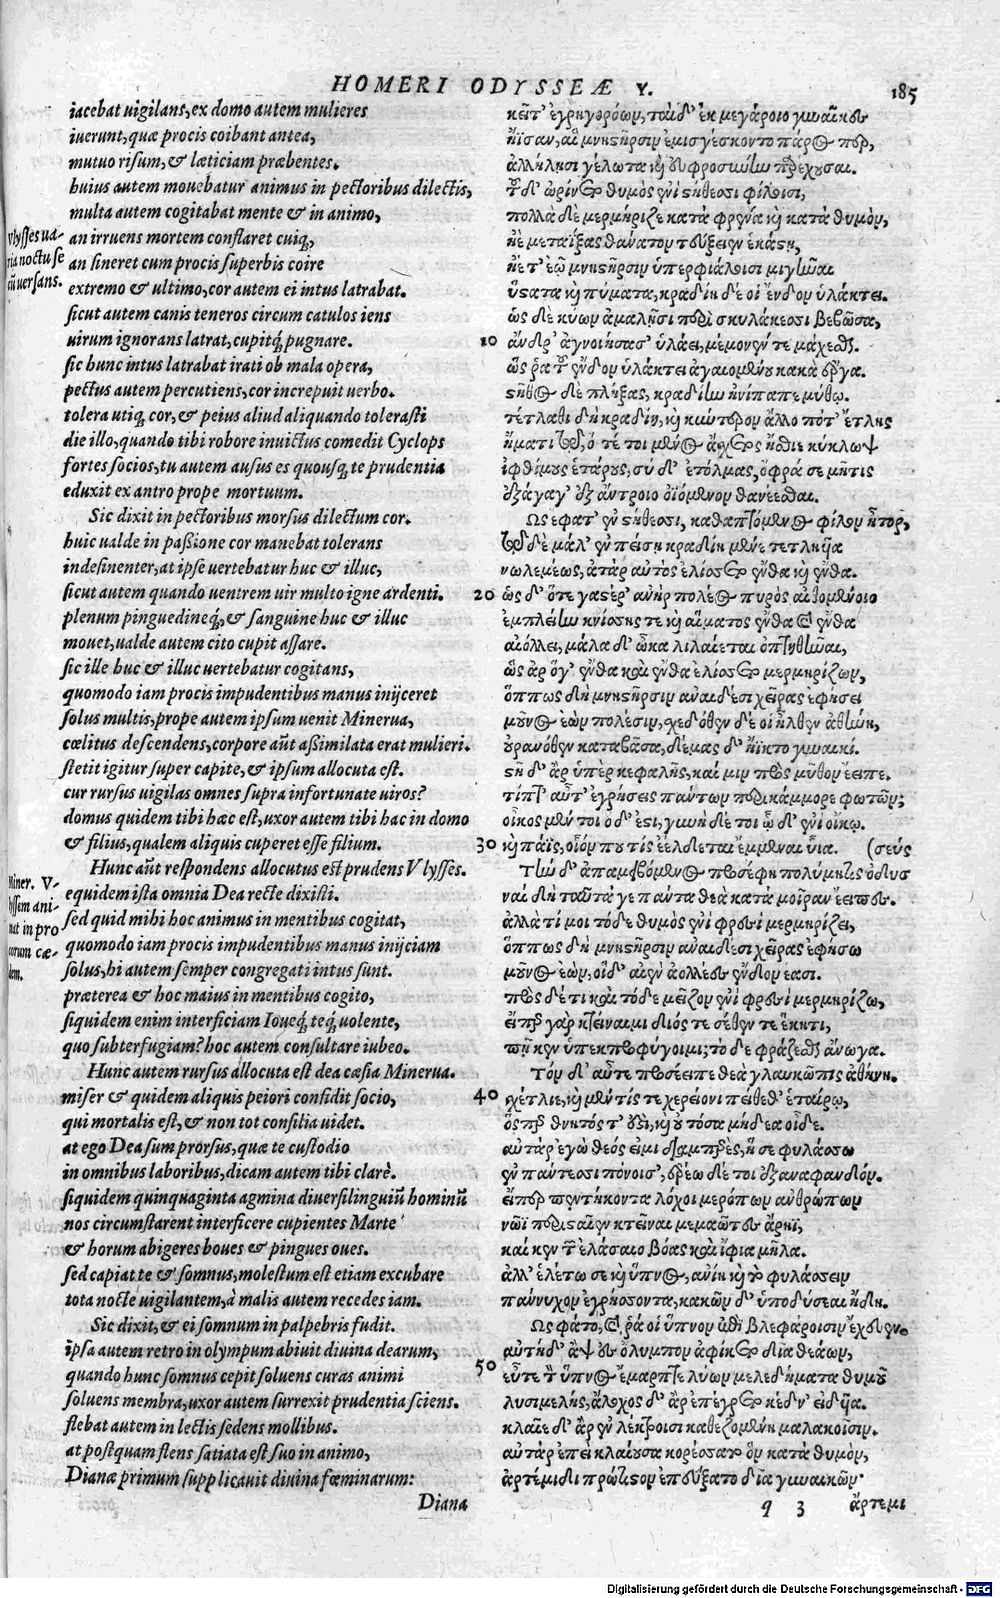 HOMERI ODYSSEÆ Υ. 185
iacebat uigilans, ex domo autem mulieres
iuerunt, quæ procis coibant antea,
mutuo risum, & læticiam præbentes.
huius autem mouebatur animus in pectoribus dilectis,
multa autem cogitabat mente & in animo,
an irruens mortem conflaret cuiq;,
an sineret cum procis superbis coire
extremo & ultimo, cor autem ei intus latrabat.
sicut autem canis teneros circum catulos iens
uirum ignorans latrat, cupitq; pugnare.
sic hunc intus latrabat irati ob mala opera,
pectus autem percutiens, cor increpuit uerbo.
tolera utiq, cor, & peius aliud aliquando tolerasti
die illo, quando tibi robore inuictus comedit Cyclops
fortes socios, tu autem ausus es quousq; te prudentia
eduxit ex antro prope mortuum.
Sic dixit in pectoribus morsus dilectum cor.
huic ualde in passione cor manebat tolerans
indesinenter, at ipse uertebatur huc & illuc,
sicut autem quando uentrem uir multo igne ardenti.
plenum pinguedineq;, & sanguine huc & illuc
mouet, ualde autem cito cupit assare.
sic ille huc & illuc uertebatur cogitans,
quomodo iam procis impudentibus manus inijceret
solus multis, prope autem ipsum uenit Minerua,
cœlitus descendens, corpore aūt assimilata erat mulieri.
stetit igitur super capite, & ipsum allocuta est.
cur rursus uigilas omnes supra infortunate uiros?
domus quidem tibi hæc est, uxor autem tibi hac in domo
& filius, qualem aliquis cuperet esse filium.
Hunc aūt respondens allocutus est prudens Vlysses.
equidem ista omnia Dea recte dixisti.
sed quid mihi hoc animus in mentibus cogitat,
quomodo iam procis impudentibus manus inijciam
solus, hi autem semper congregati intus sunt.
præterea & hoc maius in mentibus cogito,
siquidem enim interficiam Ioueq; teq; uolente,
quo subterfugiam? hoc autem consultare iubeo.
Hunc autem rursus allocuta est dea cæsia Minerua.
miser & quidem aliquis peiori confidit socio,
qui mortalis est, & non tot consilia uidet.
at ego Dea sum prorsus, quæ te custodio
in omnibus laboribus, dicam autem tibi clarè.
siquidem quinquaginta agmina diuersilinguiū hominū
nos circumstarent interficere cupientes Marte
& horum abigeres boues & pingues oues.
sed capiat te & somnus, molestum est etiam excubare
tota nocte uigilantem, à malis autem recedes iam.
Sic dixit, & ei somnum in palpebris fudit.
ipsa autem retro in olympum abiuit diuina dearum,
quando hunc somnus cepit soluens curas animi
soluens membra, uxor autem surrexit prudentia sciens.
flebat autem in lectis sedens mollibus.
at postquam flens satiata est suo in animo,
Dianæ primum supplicauit diuina fœminarum:
Diana
Vlysses ua-
ria noctu se
cū uersans.
Miner. V-
lyssem ani-
mat in pro
corum cæ-
dem.
κεῖτ' ἐγρηγορόων, ταὶ δ' ἐκ μεγάροιο γυναῖκες
ἤϊσαν, αἳ μνηστῆρσιν ἐμισγέσκοντο πάρος περ,
ἀλλήλησι γέλωτα καὶ εὐφροσύνην παρέχουσαι.
τοῦ δ' ὠρίνετο θυμὸς ἐνὶ στήθεσσι φίλοισι,
πολλὰ δὲ μερμήριζε κατὰ φρένα καὶ κατὰ θυμὸν,
ἠὲ μεταΐξας θάνατον τεύξειεν ἑκάστῃ,
ἠὲ τ' ἐῷ μνηστῆρσιν ὑπερφιάλοισι μιγῆναι
ὕστατα καὶ πύματα, κραδίη δέ οἱ ἔνδον ὑλάκτει.
ὡς δὲ κύων ἀμαλῇσι περὶ σκυλάκεσσι βεβῶσα,
10 ἄνδρ' ἀγνοιήσασ' ὑλάει, μέμονέν τε μάχεσθαι.
ὥς ῥα τοῦ ἔνδον ὑλάκτει ἀγαιομένου κακὰ ἔργα.
στῆθος δὲ πλήξας, κραδίην ἠνίπαπε μύθῳ.
τέτλαθι δὴ κραδίη, καὶ κύντερον ἄλλο ποτ' ἔτλης
ἤματι τῷ, ὅτε τοι μένος ἄσχετος ἤσθιε κύκλωψ
ἰφθίμους ἑτάρους, σὺ δ' ἐτόλμας, ὄφρα σε μῆτις
ἐξάγαγ' ἐξ ἄντροιο ὀϊόμενον θανέεσθαι.
Ὣς ἔφατ' ἐν στήθεσσι, καθαπτόμενος φίλον ἦτορ,
τῷ δὲ μάλ' ἐν πείσῃ κραδίη μένε τετληῖα
νωλεμέως, ἀτὰρ αὐτὸς ἑλίσσετο ἔνθα καὶ ἔνθα.
20 ὡς δ' ὅτε γαστέρ' ἀνὴρ πολέος πυρὸς αἰθομένοιο
ἐμπλείην κνίσσης τε καὶ αἵματος ἔνθα καὶ ἔνθα
αἰόλλει, μάλα δ' ὦκα λιλαίεται ὀπτηθῆναι,
ὣς ἄρ' ὅγ' ἔνθα καὶ ἔνθα ἑλίσσετο μερμηρίζων,
ὅππως δὴ μνηστῆρσιν ἀναιδέσι χεῖρας ἐφήσει
μοῦνος ἐὼν πολέσιν, σχεδόθεν δέ οἱ ἦλθεν ἀθήνη,
οὐρανόθεν καταβᾶσα, δέμας δ' ἤϊκτο γυναικί.
στῆ δ' ἄρ' ὑπὲρ κεφαλῆς, καί μιν πρὸς μῦθον ἔειπε.
τίπτ' αὖτ' ἐγρήσσεις πάντων περὶ κάμμορε φωτῶν;
οἶκος μέν τοι ὅδ' ἐστὶ, γυνὴ δέ τοι ᾧδ' ἐνὶ οἴκῳ.
30 καὶ πάϊς, οἷόν πού τις ἐέλδεται ἔμμεναι υἷα.
Τὴν δ' ἀπαμειβόμενος προσέφη πολύμητις ὀδυσ (σεύς
ναὶ δὴ ταῦτά γε πάντα θεὰ κατὰ μοῖραν ἔειπες.
ἀλλὰ τί μοι τόδε θυμὸς ἐνὶ φρεσὶ μερμηρίζει,
ὅππως δὴ μνηστῆρσιν ἀναιδέσι χεῖρας ἐφήσω
μοῦνος ἐὼν, οἱ δ' αἰὲν ἀολλέες ἔνδον ἔασι.
πρὸς δ' ἔτι καὶ τόδε μεῖζον ἐνὶ φρεσὶ μερμηρίζω,
εἴπερ γὰρ κτείναιμι διός τε σέθεν τε ἕκητι,
πῆ κεν ὑπεκπροφύγοιμι; τό δε φράζεσθαι ἄνωγα.
Τὸν δ' αὖτε προσέειπε θεὰ γλαυκῶπις ἀθήνη.
40 σχέτλιε, καὶ μέν τίς τε χερείονι πείθεθ' ἑταίρῳ,
ὅσπερ θνητός τ' ἐστὶ, καὶ οὐ τόσα μήδεα οἶδε.
αὐτὰρ ἐγὼ θεός εἰμι διαμπερὲς, ἥ σε φυλάσσω
ἐν πάντεσσι πόνοισ', ἐρέω δέ τοι ἐξαναφανδόν.
εἴπερ πεντήκοντα λόχοι μερόπων ἀνθρώπων
νῶϊ περισταῖεν κτεῖναι μεμαῶτες ἄρηϊ,
καί κεν τῶν ἐλάσαιο βόας καὶ ἴφια μῆλα.
ἀλλ' ἑλέτω σε καὶ ὕπνος, ἀνίη καὶ τὸ φυλάσσειν
πάννυχον ἐγρήσσοντα, κακῶν δ' ὑποδύσεαι ἤδη.
Ὣς φάτο, καί ῥά οἱ ὕπνον ἐπὶ βλεφάροισιν ἔχευεν.
αὐτὴ δ' ἂψ ἐς ὄλυμπον ἀφίκετο δῖα θεάων,
50 εὖτε τὸν ὕπνος ἔμαρπτε λύων μελεδήματα θυμοῦ
λυσιμελής, ἄλοχος δ' ἄρ' ἐπέγρετο κέδν' εἰδυῖα.
κλαῖε δ' ἄρ' ἐν λέκτροισι καθεζομένη μαλακοῖσιν.
αὐτὰρ ἐπεὶ κλαίουσα κορέσσατο ὃν κατὰ θυμὸν,
ἀρτέμιδι πρώτιστον ἐπεύξατο δῖα γυναικῶν·
q 3 ἄρτεμι
Digitalisierung gefördert durch die Deutsche Forschungsgemeinschaft - DFG